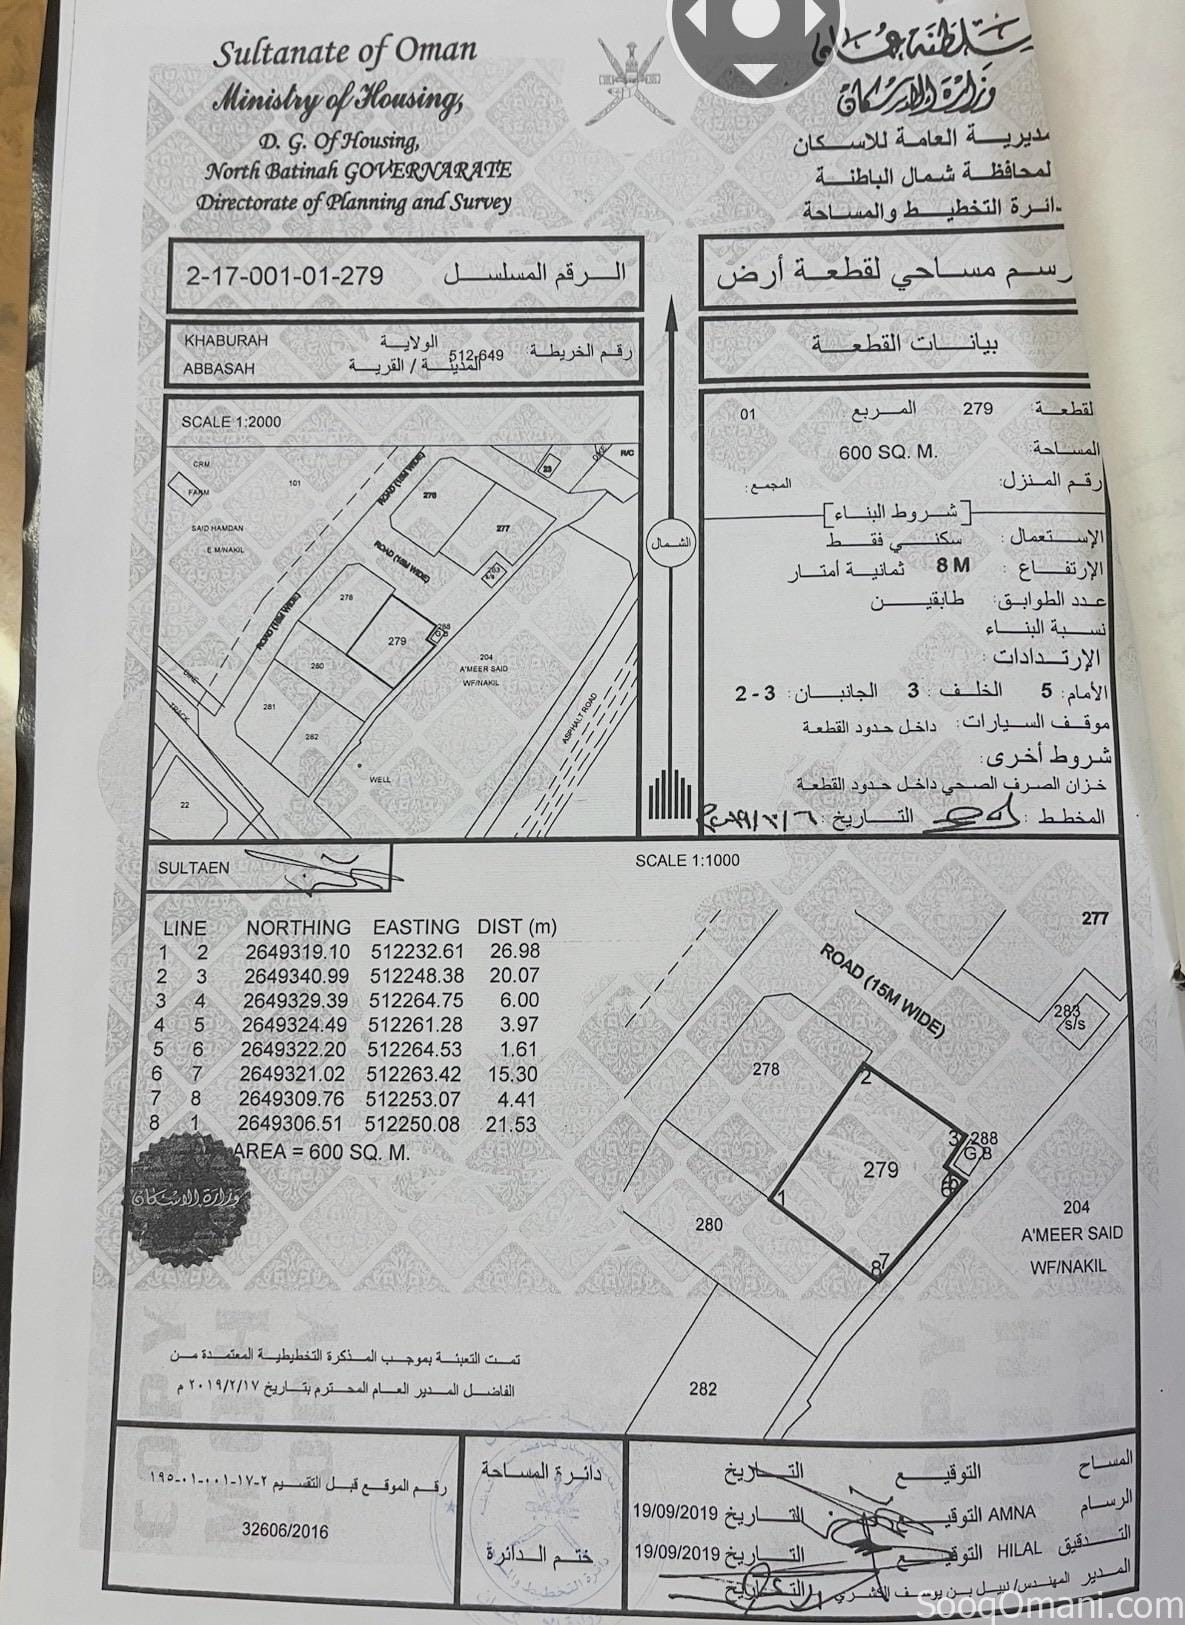 Sultanate of Oman
Ministry of Housing,
D. G. Of Housing,
North Batinah GOVERNARATE
Directorate of Planning and Survey
سلطنة عمان
وزارة الإسكان
مديرية العامة للاسكان
لمحافظة شمال الباطنة
دائرة التخطيط والمساحة
2-17-001-01-279 الرقم المسلسل
رسم مساحي لقطعة أرض
KHABURAH الولاية
ABBASAH المدينة / القرية
رقم الخريطة 512-649
بيانات القطعة
لقطعة: 279 المربع: 01
المساحة: 600 SQ. M.
رقم المنزل: المجمع:
شروط البناء
الإستعمال: سكني فقط
الإرتفاع: 8 M ثمانية أمتار
عدد الطوابق: طابقين
نسبة البناء
الإرتدادات:
الأمام: 5 الخلف: 3 الجانبان: 3 - 2
موقف السيارات: داخل حدود القطعة
شروط أخرى:
خزان الصرف الصحي داخل حدود القطعة
المخطط: التاريخ:
الشمال
SCALE 1:2000
CRM
FARM
101
SAID HAMDAN
E M/NAKIL
ROAD (15M WIDE)
ROAD (15M WIDE)
ROAD (15M WIDE)
276
277
23
DIKE
R/C
278
279
288
G.B
280
281
282
283
204
A'MEER SAID
WF/NAKIL
ASPHALT ROAD
DIKE
TRACK
WELL
22
SULTAEN
SCALE 1:1000
LINE NORTHING EASTING DIST (m)
1 2 2649319.10 512232.61 26.98
2 3 2649340.99 512248.38 20.07
3 4 2649329.39 512264.75 6.00
4 5 2649324.49 512261.28 3.97
5 6 2649322.20 512264.53 1.61
6 7 2649321.02 512263.42 15.30
7 8 2649309.76 512253.07 4.41
8 1 2649306.51 512250.08 21.53
AREA = 600 SQ. M.
وزارة الاسكان
277
ROAD (15M WIDE)
283
s/s
278
2
3
288
G.B
279
1
6
7
8
280
282
204
A'MEER SAID
WF/NAKIL
تمت التعبئة بموجب المذكرة التخطيطية المعتمدة من
الفاضل المدير العام المحترم بتاريخ ٢٠١٩/٢/١٧ م
COPY
MOH
COPY
رقم الموقع قبل التقسيم ٢-١٧-٠٠١-٠١-١٩٥
32606/2016
دائرة المساحة
ختم الدائرة
المساح التوقيع التاريخ
الرسام AMNA التوقيع التاريخ 19/09/2019
التدقيق HILAL التوقيع التاريخ 19/09/2019
المدير المهندس/ نبيل بن يوسف الكشري التاريخ
SooqOmani.com